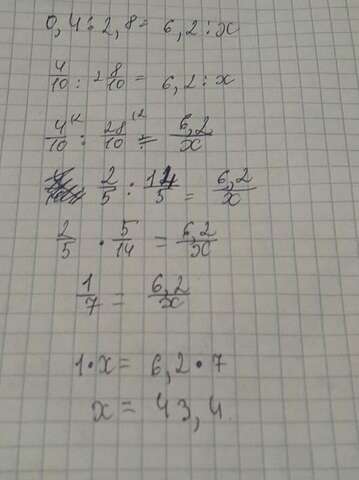 0,4 : 2,8 = 6,2 : x
4/10 : 2 8/10 = 6,2 : x
4/10 : 28/10 = 6,2/x
2/5 : 14/5 = 6,2/x
2/5 · 5/14 = 6,2/x
1/7 = 6,2/x
1 · x = 6,2 · 7
x = 43,4.